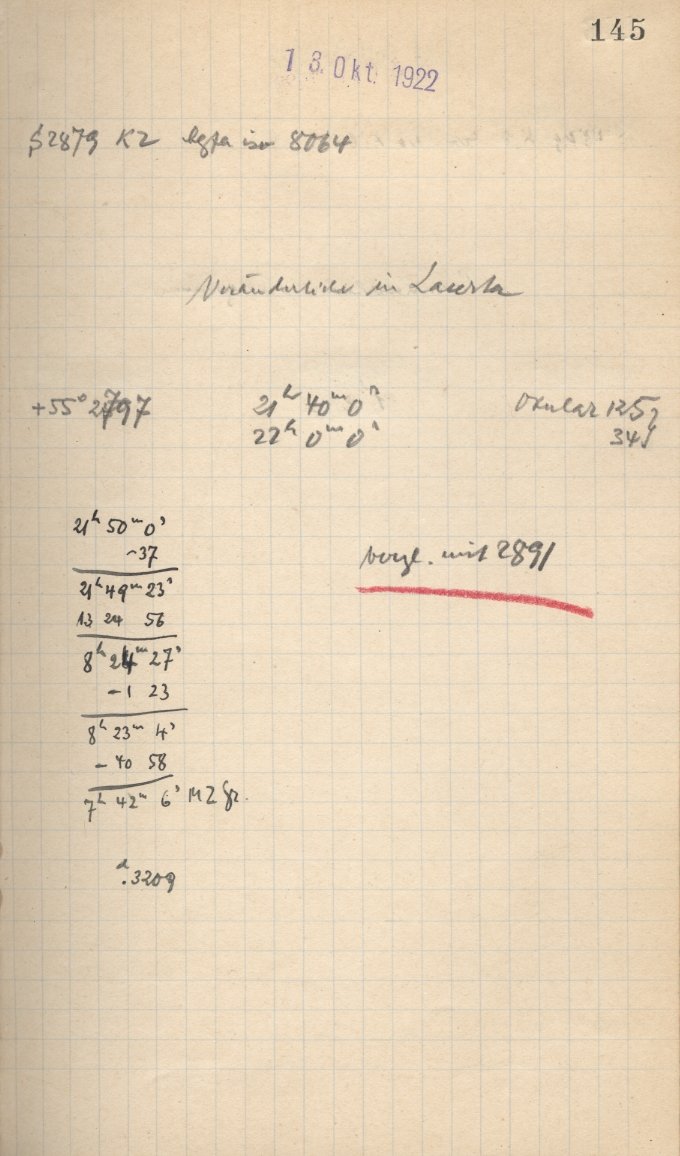 145
13. Okt. 1922
S 2879 K2 Agfa iso 8064
Veränderliche in Lacerta
+55° 2797
21ʰ 40ᵐ 0ˢ
22ʰ 0ᵐ 0ˢ
Okular 125,
34
21ʰ 50ᵐ 0ˢ
-37
21ʰ 49ᵐ 23ˢ
13 24 56
8ʰ 24ᵐ 27ˢ
-1 23
8ʰ 23ᵐ 4ˢ
- 40 58
7ʰ 42ᵐ 6ˢ MZ Gr.
ᵈ.3209
vergl. mit 2891